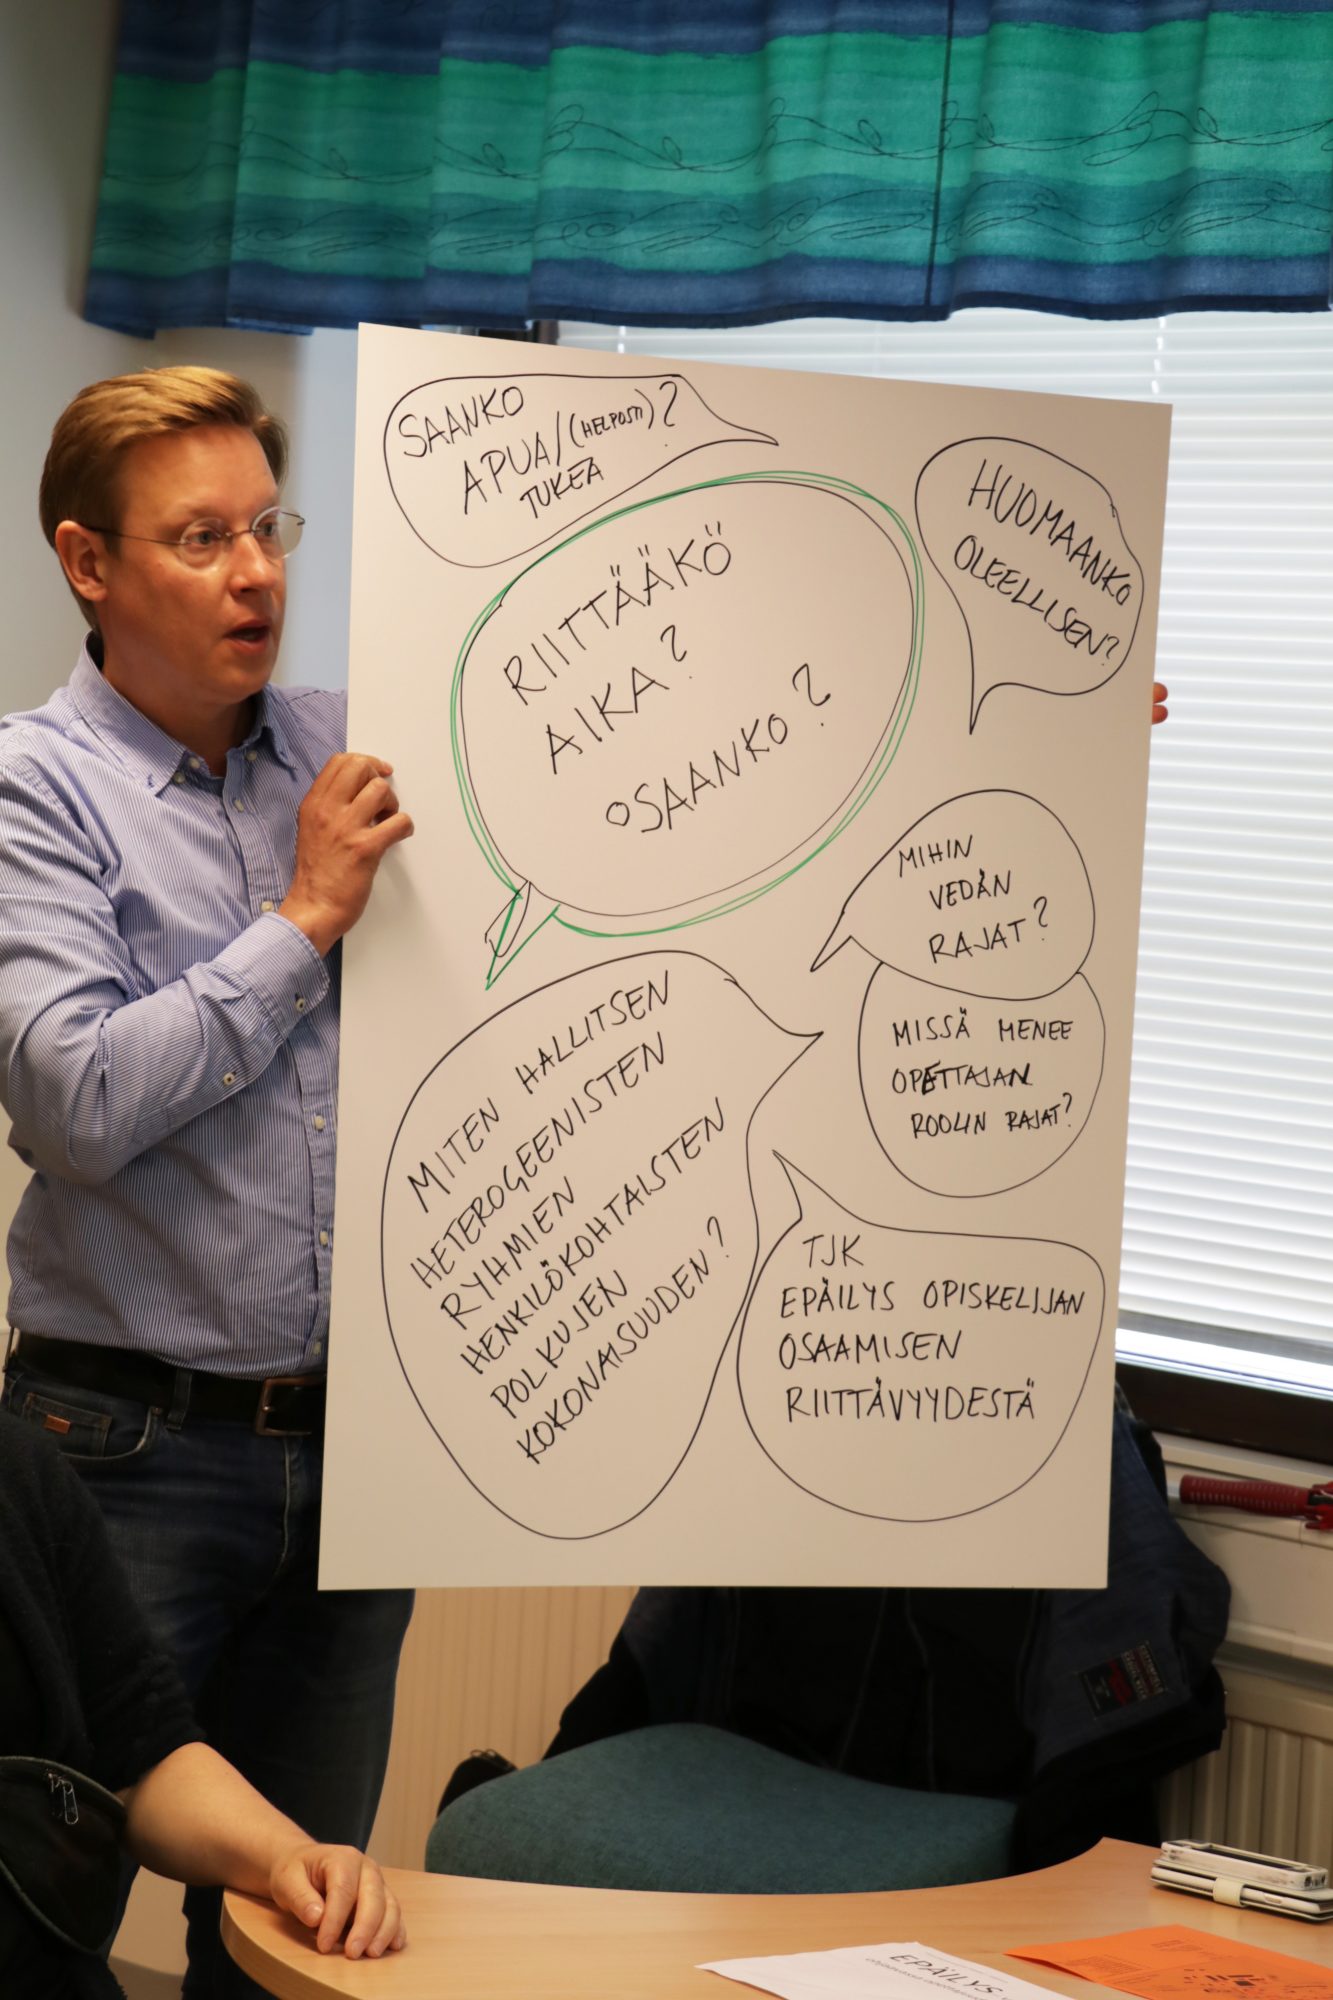 SAANKO
APUA/(HELPOSTI)?
TUKEA
HUOMAANKO
OLEELLISEN?
RIITTÄÄKÖ
AIKA?
OSAANKO?
MIHIN
VEDÄN
RAJAT?
MISSÄ MENEE
OPETTAJAN
ROOLIN RAJAT?
MITEN HALLITSEN
HETEROGEENISTEN
RYHMIEN
HENKILÖKOHTAISTEN
POLKUJEN
KOKONAISUUDEN?
TJK
EPÄILYS OPISKELIJAN
OSAAMISEN
RIITTÄVYYDESTÄ
EPÄILYS